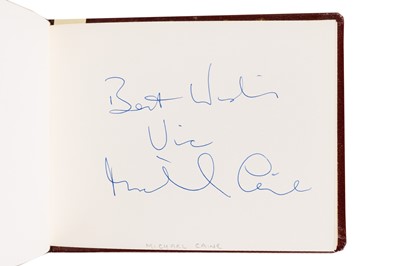 Best Wishes
Vic
Michael Caine
MICHAEL CAINE